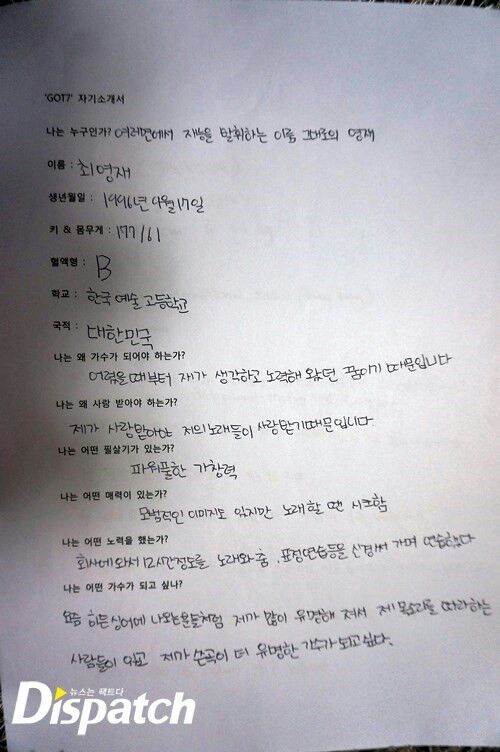 'GOT7' 자기소개서
나는 누구인가? 여러면에서 재능을 발휘하는 이름 그대로의 영재
이름 : 최영재
생년월일 : 1996년 9월 17일
키 & 몸무게 : 177/61
혈액형 : B
학교 : 한국 예술 고등학교
국적 : 대한민국
나는 왜 가수가 되어야 하는가?
어렸을때부터 제가 생각하고 노력해 왔던 꿈이기 때문입니다
나는 왜 사랑 받아야 하는가?
제가 사랑받아야 저의노래들이 사랑받기때문입니다.
나는 어떤 필살기가 있는가?
파워풀한 가창력
나는 어떤 매력이 있는가?
모범적인 이미지도 있지만 노래할 땐 시크함
나는 어떤 노력을 했는가?
회사에와서 12시간정도를 노래와춤, 표정연습등을 신경써 가며 연습했다
나는 어떤 가수가 되고 싶나?
요즘 히든싱어에 나오는분들처럼 제가 많이 유명해 져서 제 목소리를 따라하는
사람들이 있고 제가 쓴곡이 더 유명한 가수가되고싶다.
뉴스는 팩트다
Dispatch